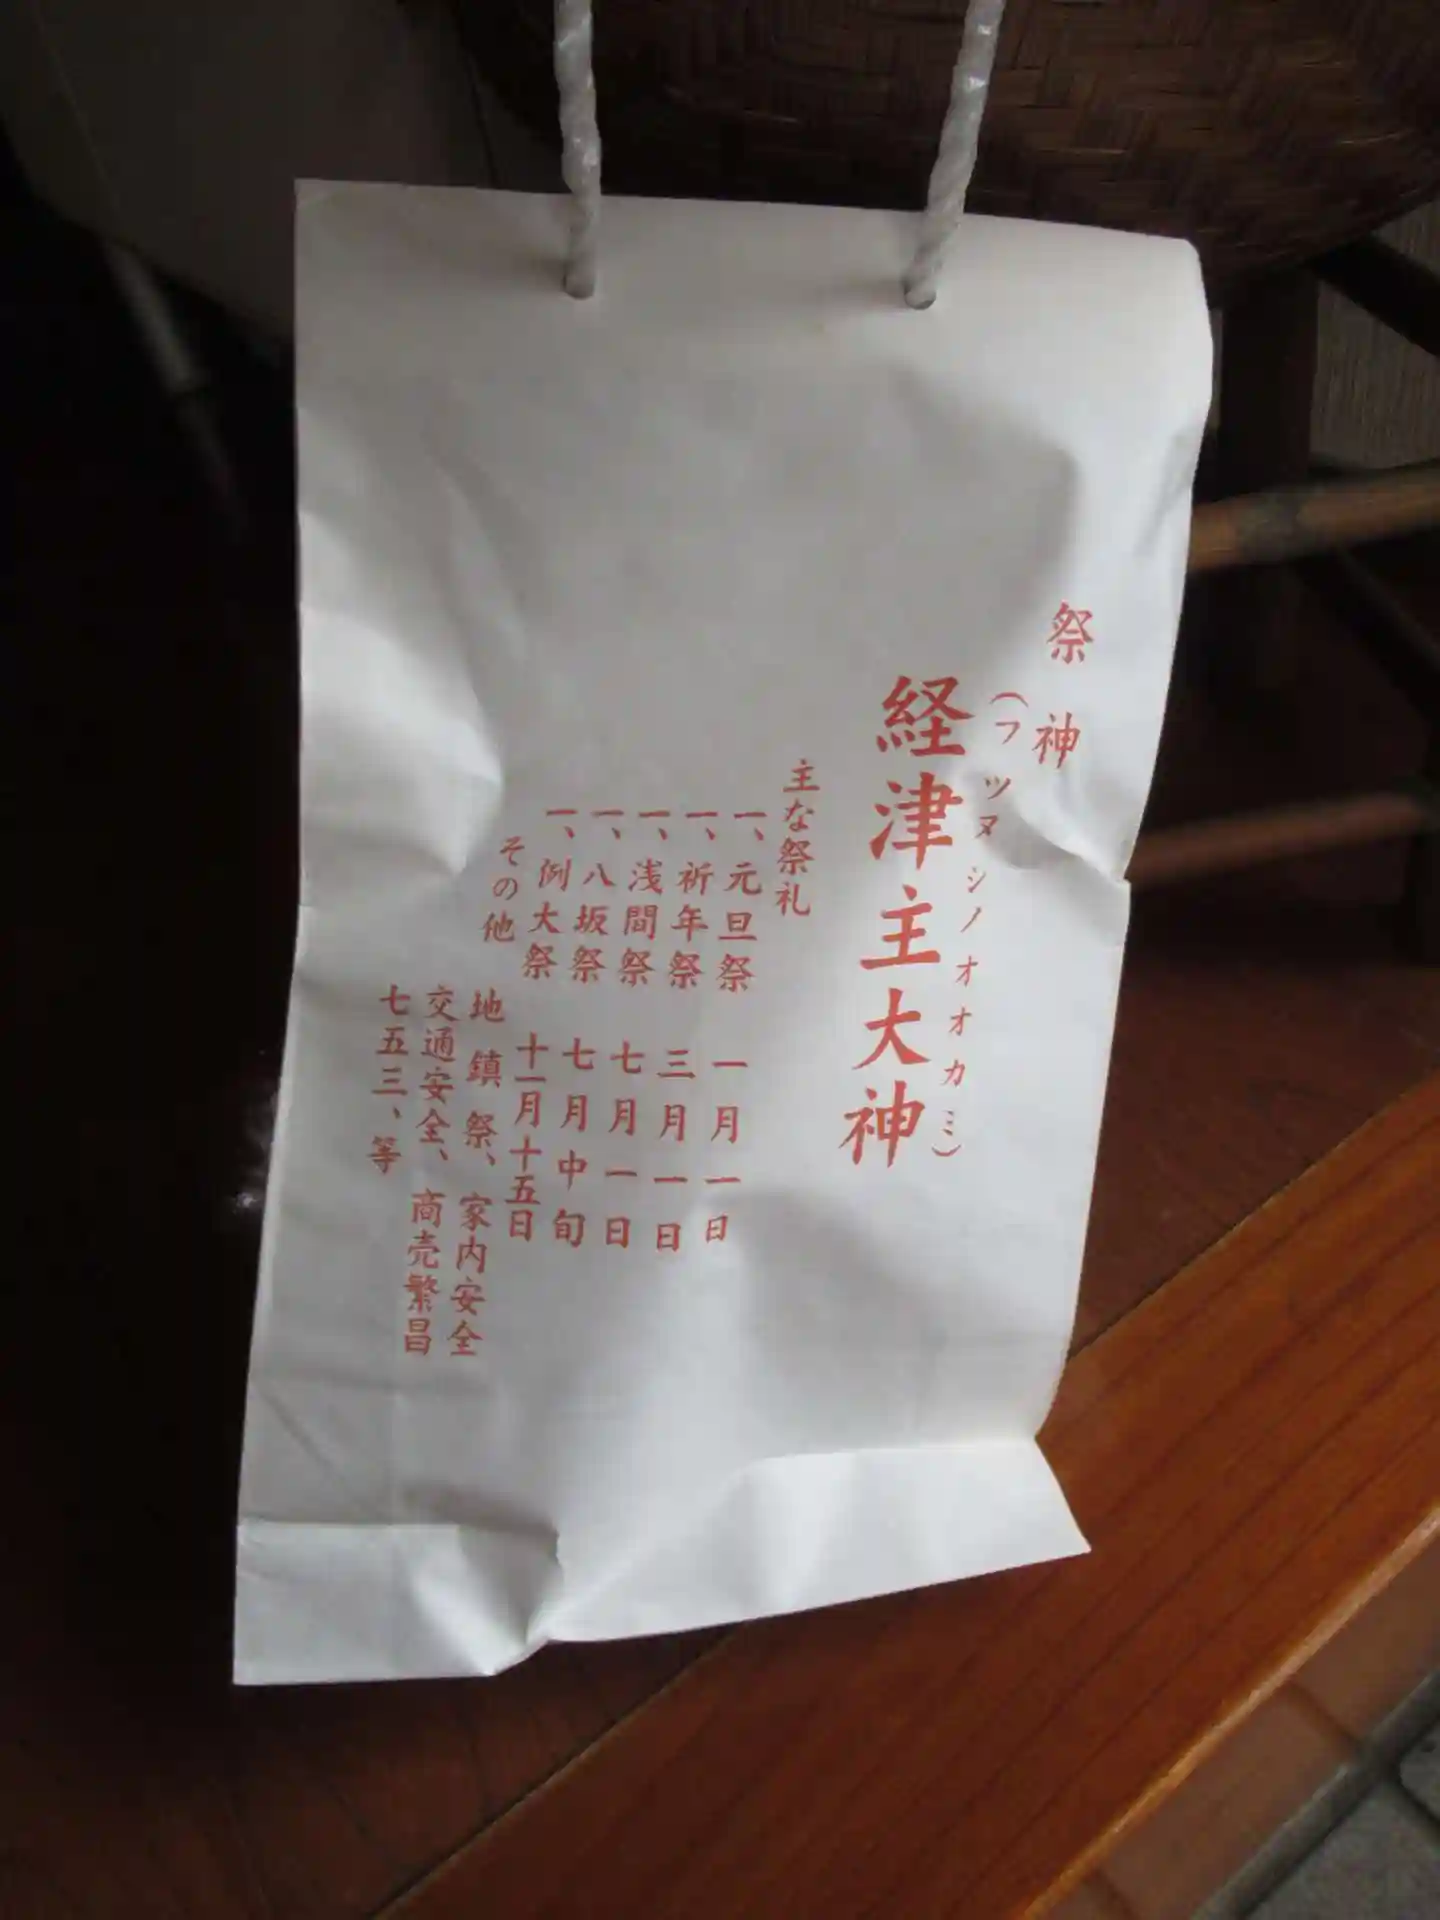 祭神
(フツヌシノオオカミ)
経津主大神
主な祭礼
一、元旦祭 一月一日
一、祈年祭 三月一日
一、浅間祭 七月一日
一、八坂祭 七月中旬
一、例大祭 十一月十五日
その他
地鎮祭、家内安全
交通安全、商売繁昌
七五三、等